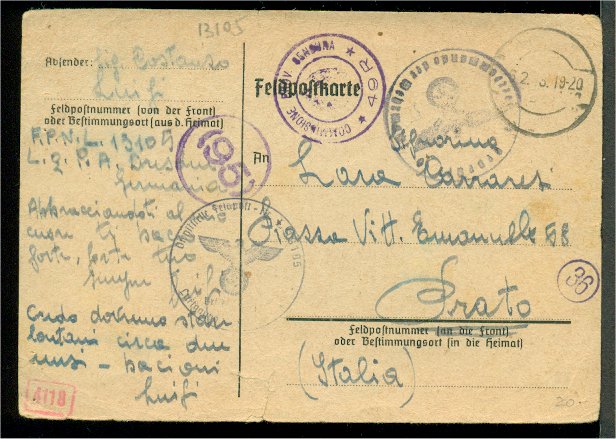 13105
Absender: Sig. Costanzo
Luigi
Feldpostnummer (von der Front)
oder Bestimmungsort (aus d. Heimat)
F.P.N.L. 13105
L. g. P. A. Dresden
Germania
Abbracciandoti al mio
cuore ti bacio
forte, forte tuo
sempre
Credo dovremo stare
lontani circa due
mesi - bacioni
Luigi
4118
COMMISSIONE PROV. CENSURA
49R
Feldpostkarte
2. 8. 19-20
(195)
13105
An Signorina
Lara Cavaresi
Piazza Vitt. Emanuele 58
36
Prato
Feldpostnummer (an die Front)
oder Bestimmungsort (in die Heimat)
(Italia)
20